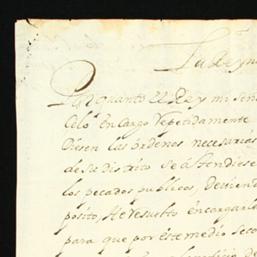 La Reyna
Por quanto el Rey mi Señ
Zelo encargo repetidamente
Diesen las ordenes necesarias
de su distrito se atendiese
los pecados publicos, Deviend
posito, He resuelto encargarle
para que por este medio se co